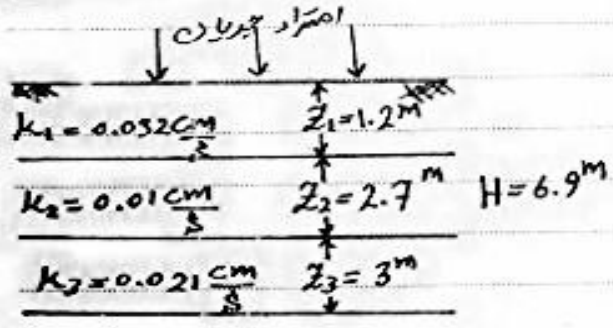 امتداد جریان
K₁ = 0.032 cm/s Z₁=1.2 m
K₂ = 0.01 cm/s Z₂=2.7 m H=6.9 m
K₃=0.021 cm/s Z₃=3 m